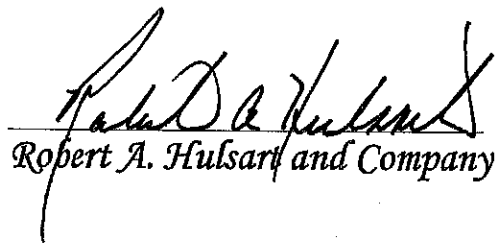 Robert A Hulsart
Robert A. Hulsart and Company